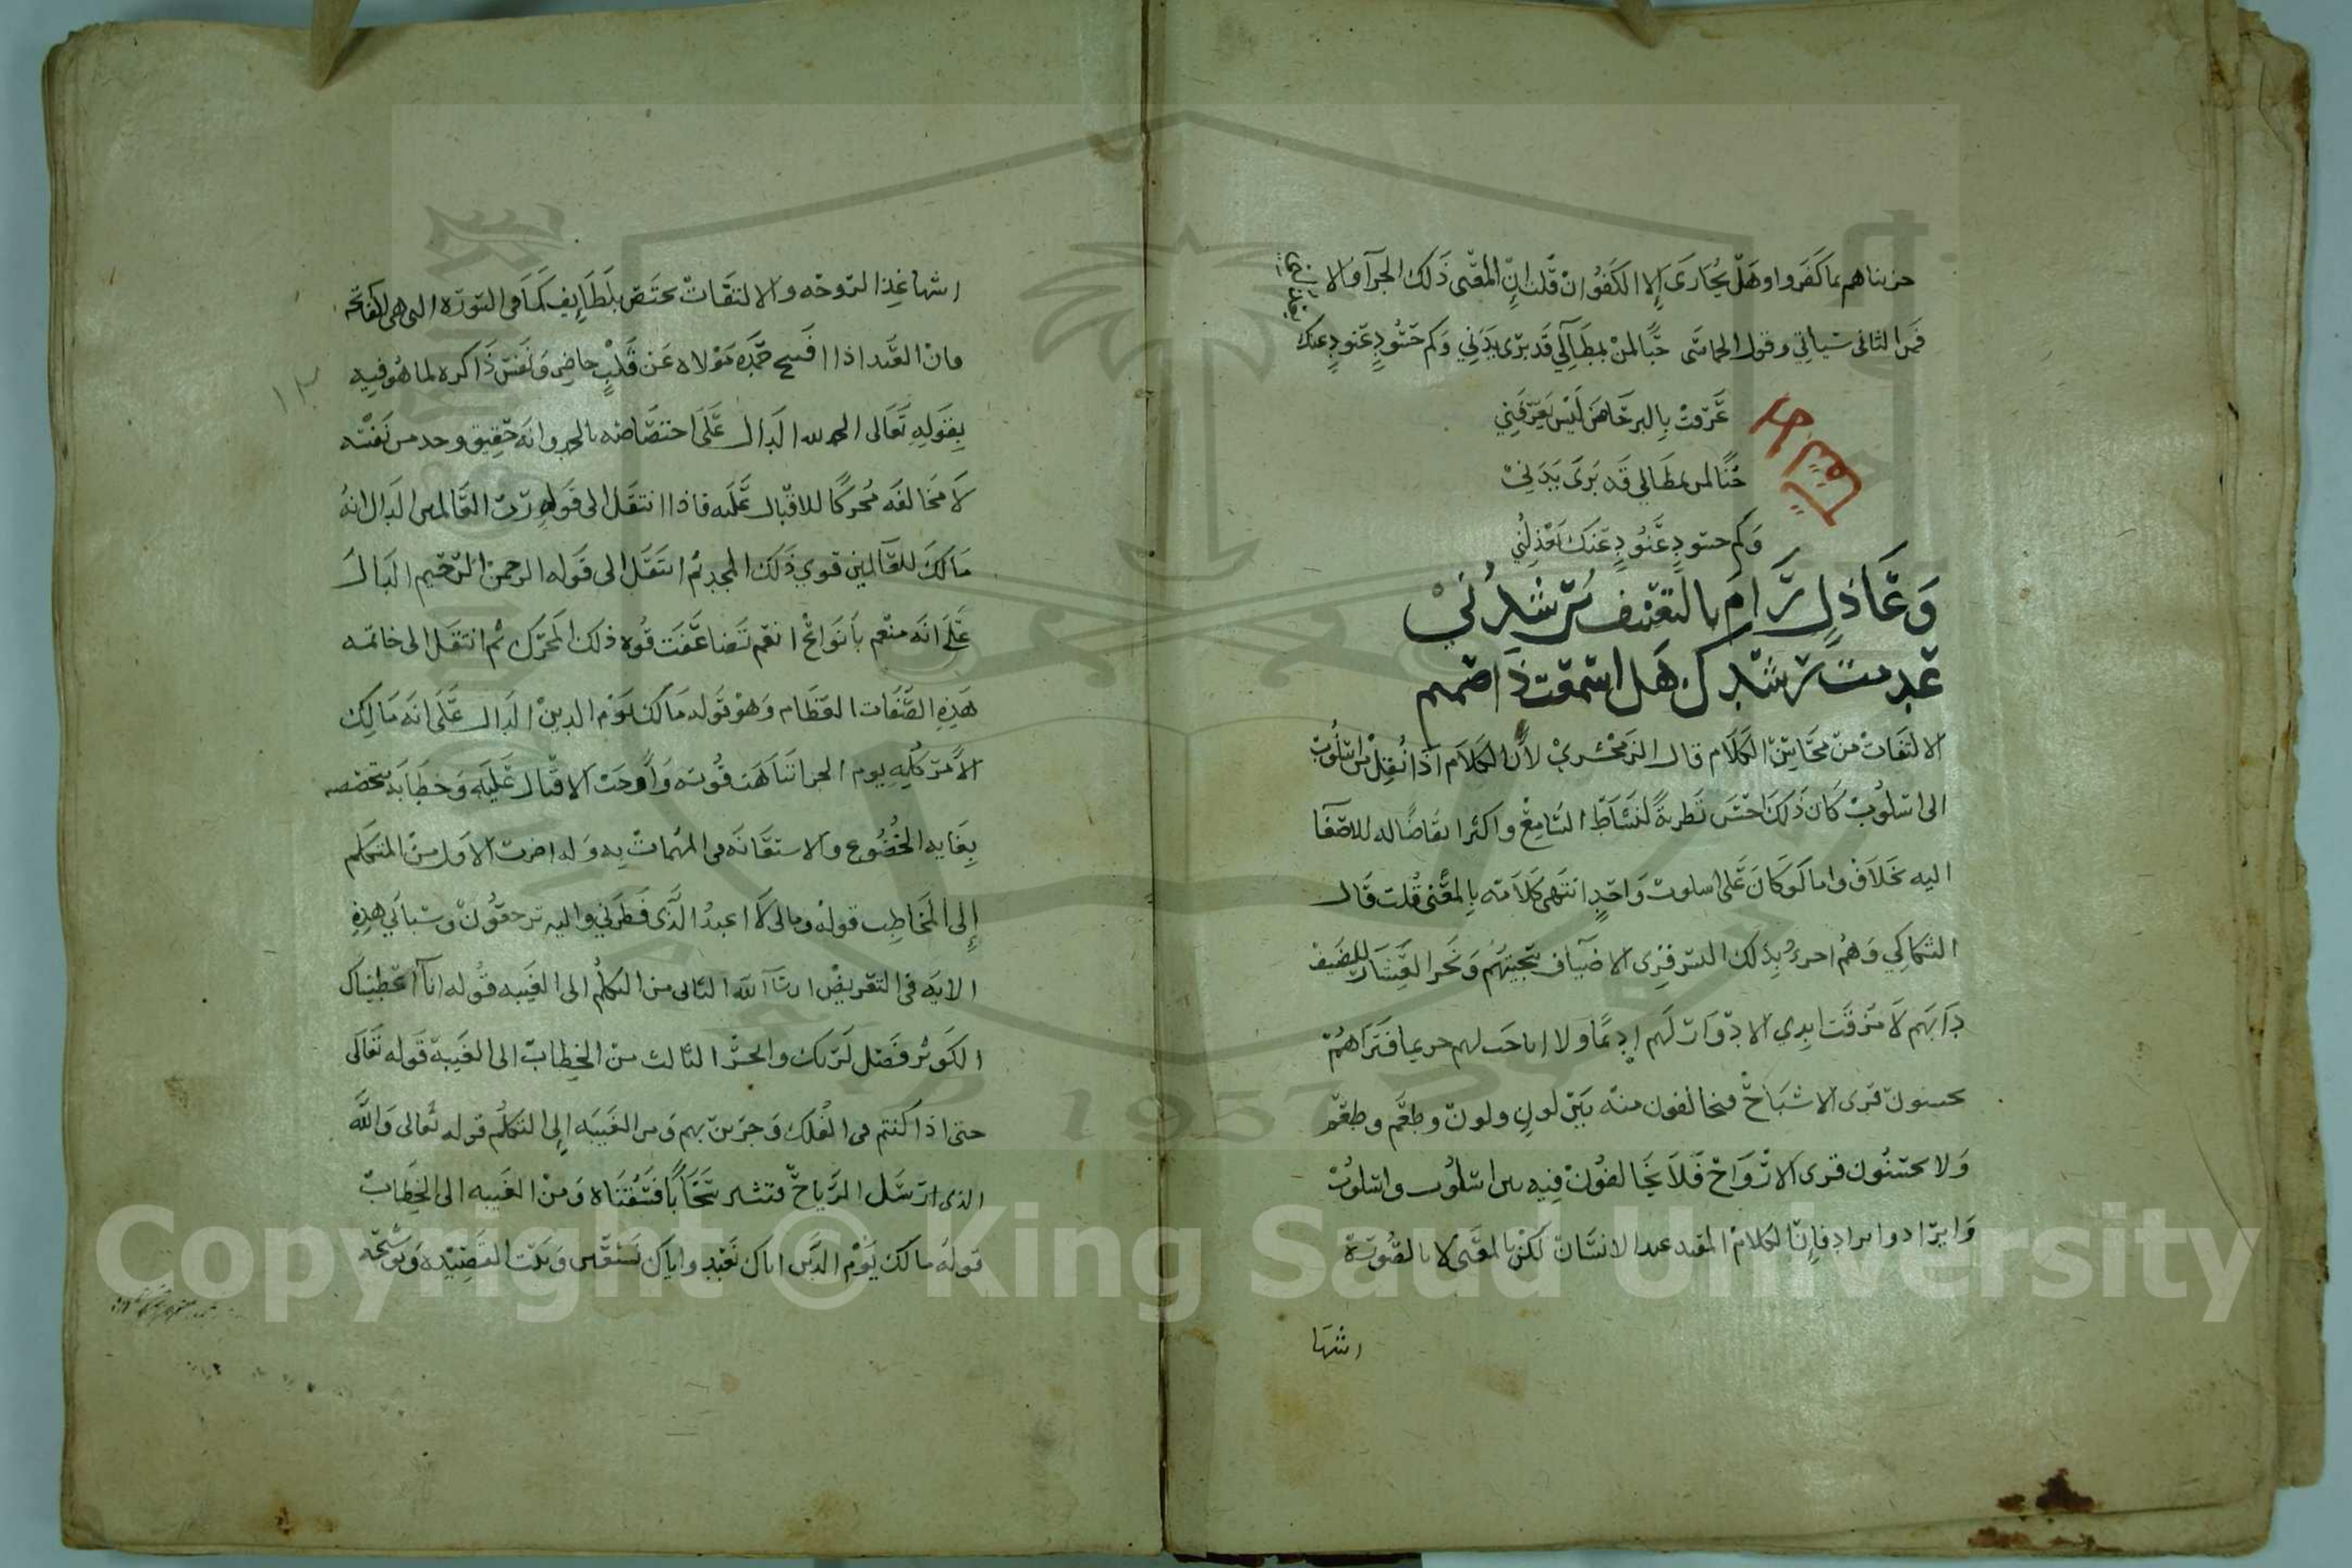 جزيناهم بما كفروا وهل يجازى إلا الكفور ان قلنا إنّ المعنى ذلك الجزآ والا
فمن الثانى سياتي وقول الحماسى حبًّا لمن بمطالي قد برى بدني وكم حسودٍ عنودٍ عنك
عرفت بالبرحا من ليس يعرفني
حبًّا لمن بمطالي قد برى بدني
وكم حسودٍ عنودٍ عنك
وعاذلٍ رام بالتعنيف يرشدني
عدمت رشدك هل اسمعت ذا صمم
الالتفات من محاسن الكلام قال الزمخشري لأن الكلام اذا نقل من اسلوب
الى اسلوب كان ذلك احسن تطرية لنشاط السامع واكثر ايقاضا له للاصغا
اليه بخلاف واما لو كان على اسلوب واحدٍ انتهى كلامه بالمعنى قلت قال
السكاكي وهم احرى بذلك اليس قرى الاضياف سجيتهم ونحر العشار للضيف
دابهم لا مزقت ايدي الادوار لهم اديمًا ولا اباحت لهم حريما فتراهم
يحسنون قرى الاشباح فيخالفون منه بين لون ولون وطعم وطعم
ولا يحسنون قرى الارواح فلا يخالفون فيه بين اسلوب واسلوب
وايراد وايراد فان الكلام المفيد عند الانسان لكن بالمعنى لا بالصورة
اشها
اشها غذا لروحه والالتفات يختص بلطايف كما فى السورة التى هى الفاتحة
فان العبد اذا افتتح حمد مولاه عن قلبٍ حاضر ونفس ذاكرة لما هو فيه
بقوله تعالى الحمد لله الدال على اختصاصه بالحمد وانه حقيق وجد من نفسه
لا مخالفه محركًا للاقبال عليه فاذا انتقل الى قوله رب العالمين الدال انه
مالك للعالمين قوي ذلك المجد ثم انتقل الى قوله الرحمن الرحيم الدال
على انه منعم بانواع انعم تضاعفت قوة ذلك المحرك ثم انتقل الى خاتمه
هذه الصفات العظام وهو قوله مالك يوم الدين الدال على انه مالك
الأمر كله يوم الجزا تناهت قوته وأوجب الاقبال عليه وخطابه بتخصصه
بغايه الخضوع والاستعانه فى المهمات به وله اضرب الاول من المتكلم
إلى المخاطب قوله ومالى لا اعبد الذى فطرني واليه ترجعون وسياتي هذه
الايه فى التعريض ان شآ الله الثانى من التكلم الى الغيبه قوله انآ اعطيناك
الكوثر فصل لربك وانحر الثالث من الخطاب الى الغيبة قوله تعالى
حتى اذا كنتم فى الفلك وجرين بهم ومن الغيبه إلى التكلم قوله تعالى والله
الذى ارسل الرياح فتثير سحابا فسقناه ومن الغيبه الى الخطاب
قوله مالك يوم الدين اياك نعبد واياك نستعين وبيت القصيده
Copyright © King Saud University
1957